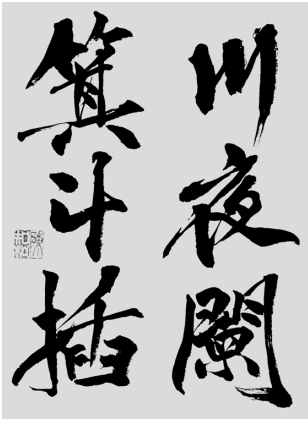 川夜闌
箕斗插